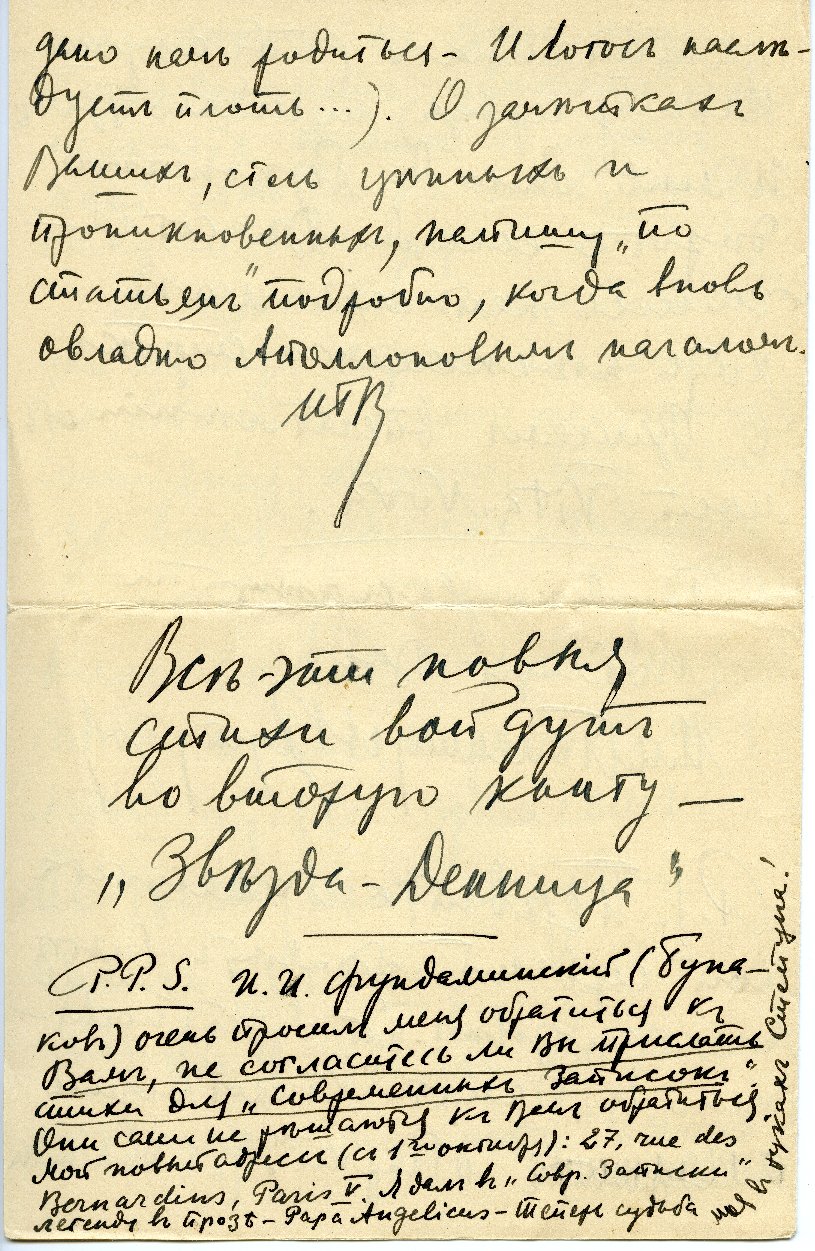 дано намъ родиться – И Логосъ наслѣ-
дуетъ плоть...). О замѣткахъ
Вашихъ, столь цѣнныхъ и
проникновенныхъ, напишу „по
статьямъ“ подробно, когда вновь
овладѣю Аполлоновымъ началомъ.
Всѣ эти новыя
стихи войдутъ
во вторую книгу —
„Звѣзда-Денница“
P.P.S. И. И. Фундаминскій (Буна-
ковъ) очень просилъ меня обратиться къ
Вамъ, не согласитесь ли Вы прислать
стихи для „Современныхъ Записокъ“.
Они сами не рѣшаются къ Вамъ обратиться
Мой новый адресъ (съ 1го октября): 27, rue des
Bernardins, Paris V. Я далъ въ „Совр. Записки“
легенду въ прозѣ – Papa Angelicus – теперь судьба
моя въ рукахъ Степуна!